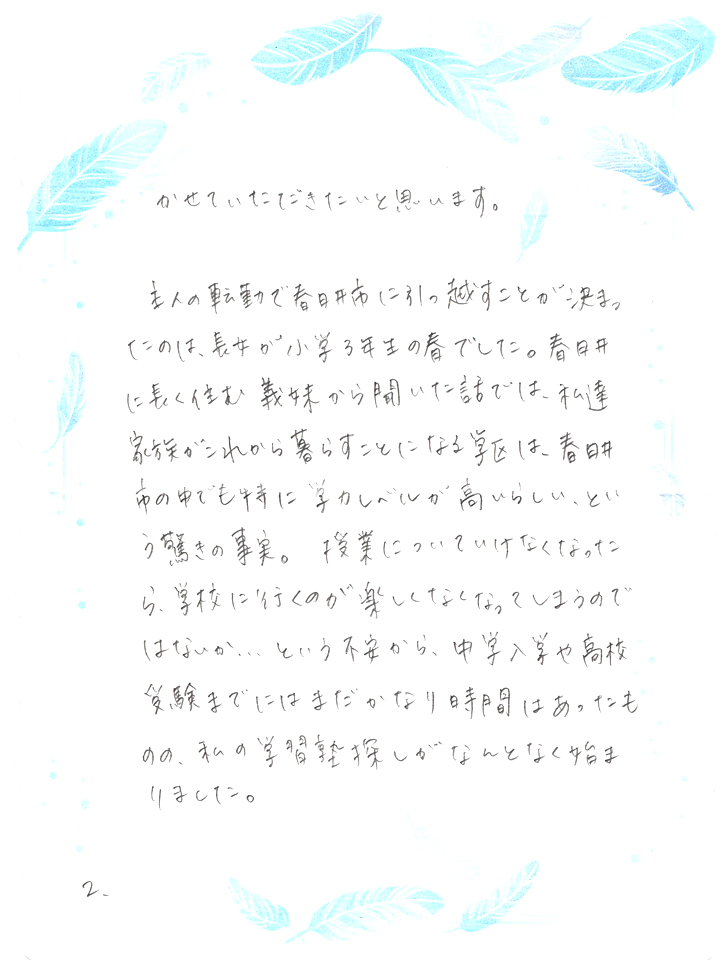 かせていただきたいと思います。
主人の転勤で春日井市に引っ越すことが決まっ
たのは、長女が小学3年生の春でした。春日井
に長く住む義妹から聞いた話では、私達
家族がこれから暮らすことになる学区は、春日井
市の中でも特に学力レベルが高いらしい、とい
う驚きの事実。 授業についていけなくなった
ら、学校に行くのが楽しくなくなってしまうので
はないか...という不安から、中学入学や高校
受験までにはまだかなり時間はあったも
のの、私の学習塾探しがなんとなく始ま
りました。
2.